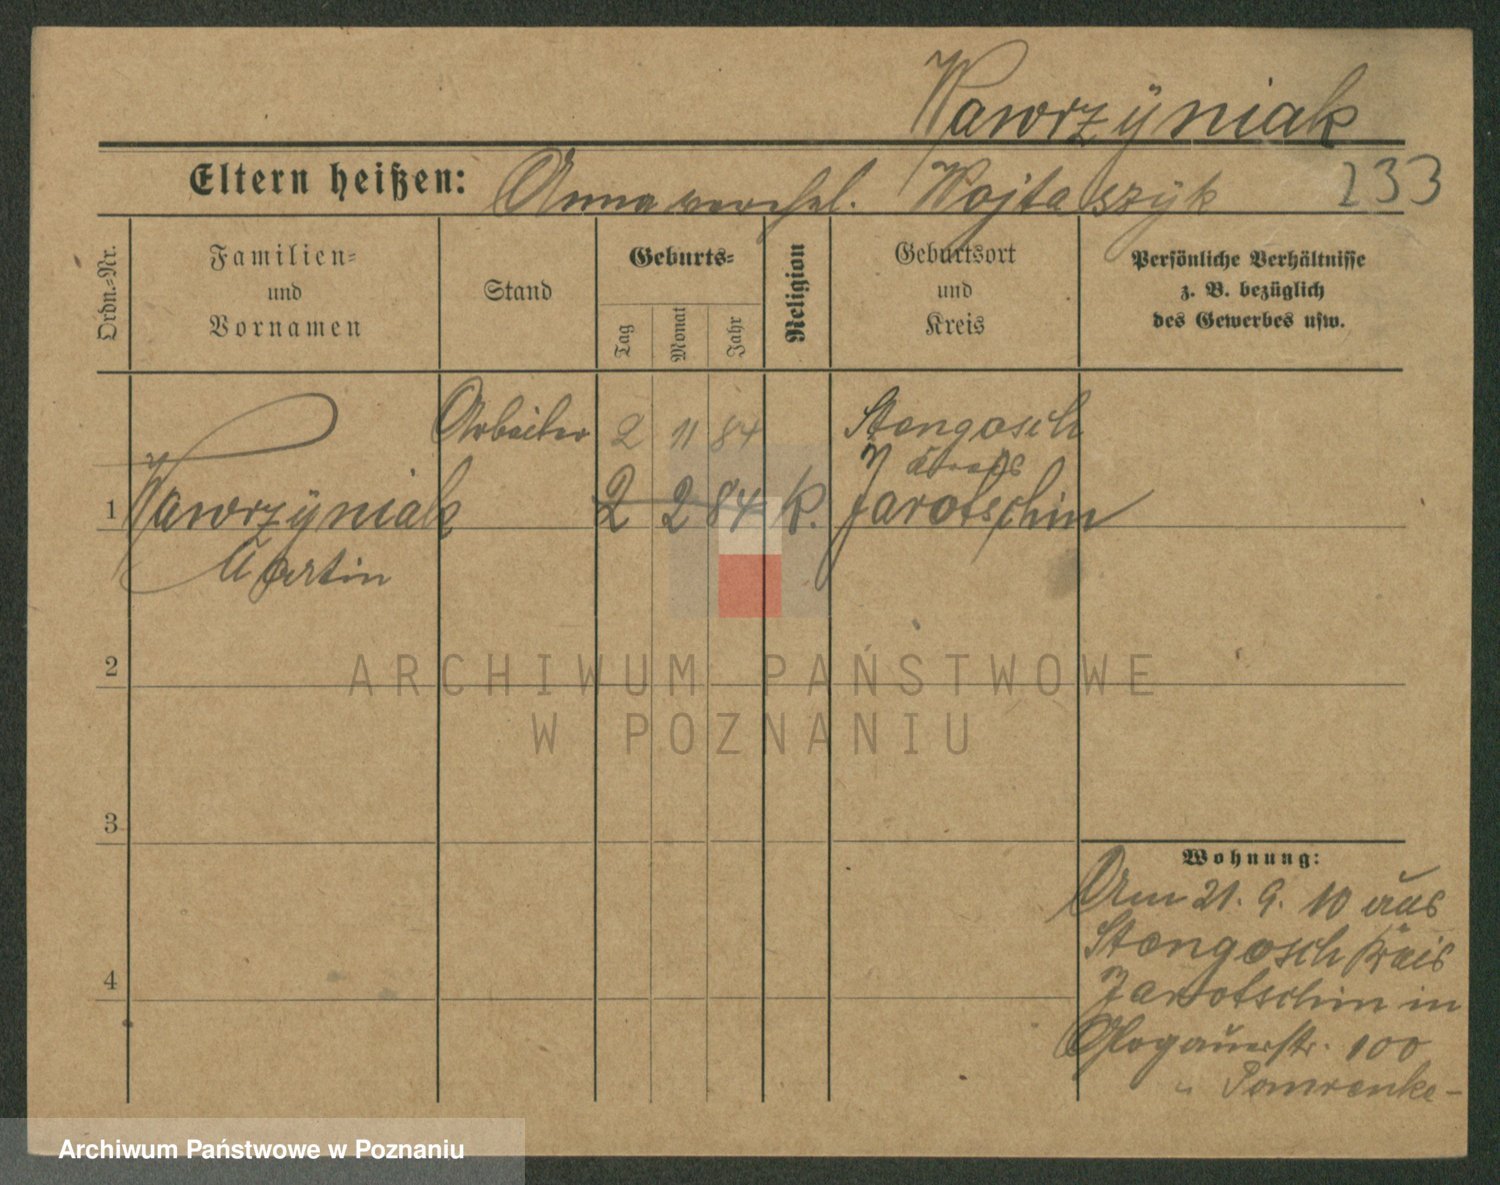 Wawrzÿniak
Eltern heißen: Anna verehel. Wojtaszÿk 233
Ordn.-Nr.
Familien-
und
Vornamen
Stand
Geburts-
Tag
Monat
Jahr
Religion
Geburtsort
und
Kreis
Persönliche Verhältnisse
z. B. bezüglich
des Gewerbes usw.
Arbeiter 2 11 84 Stengosch
Kreis
1 Wawrzÿniak 2 2 84 k. Jarotschin
Martin
2
3
4
Wohnung:
Am 21. 9. 10 aus
Stengosch Kreis
Jarotschin in
Glogauerstr. 100
Pomrenke-
ARCHIWUM PAŃSTWOWE
W POZNANIU
Archiwum Państwowe w Poznaniu